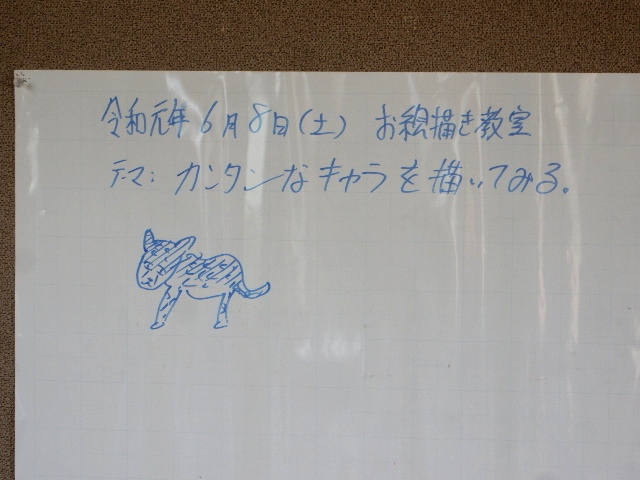 令和元年6月8日(土) お絵描き教室
テーマ:カンタンなキャラを描いてみる。